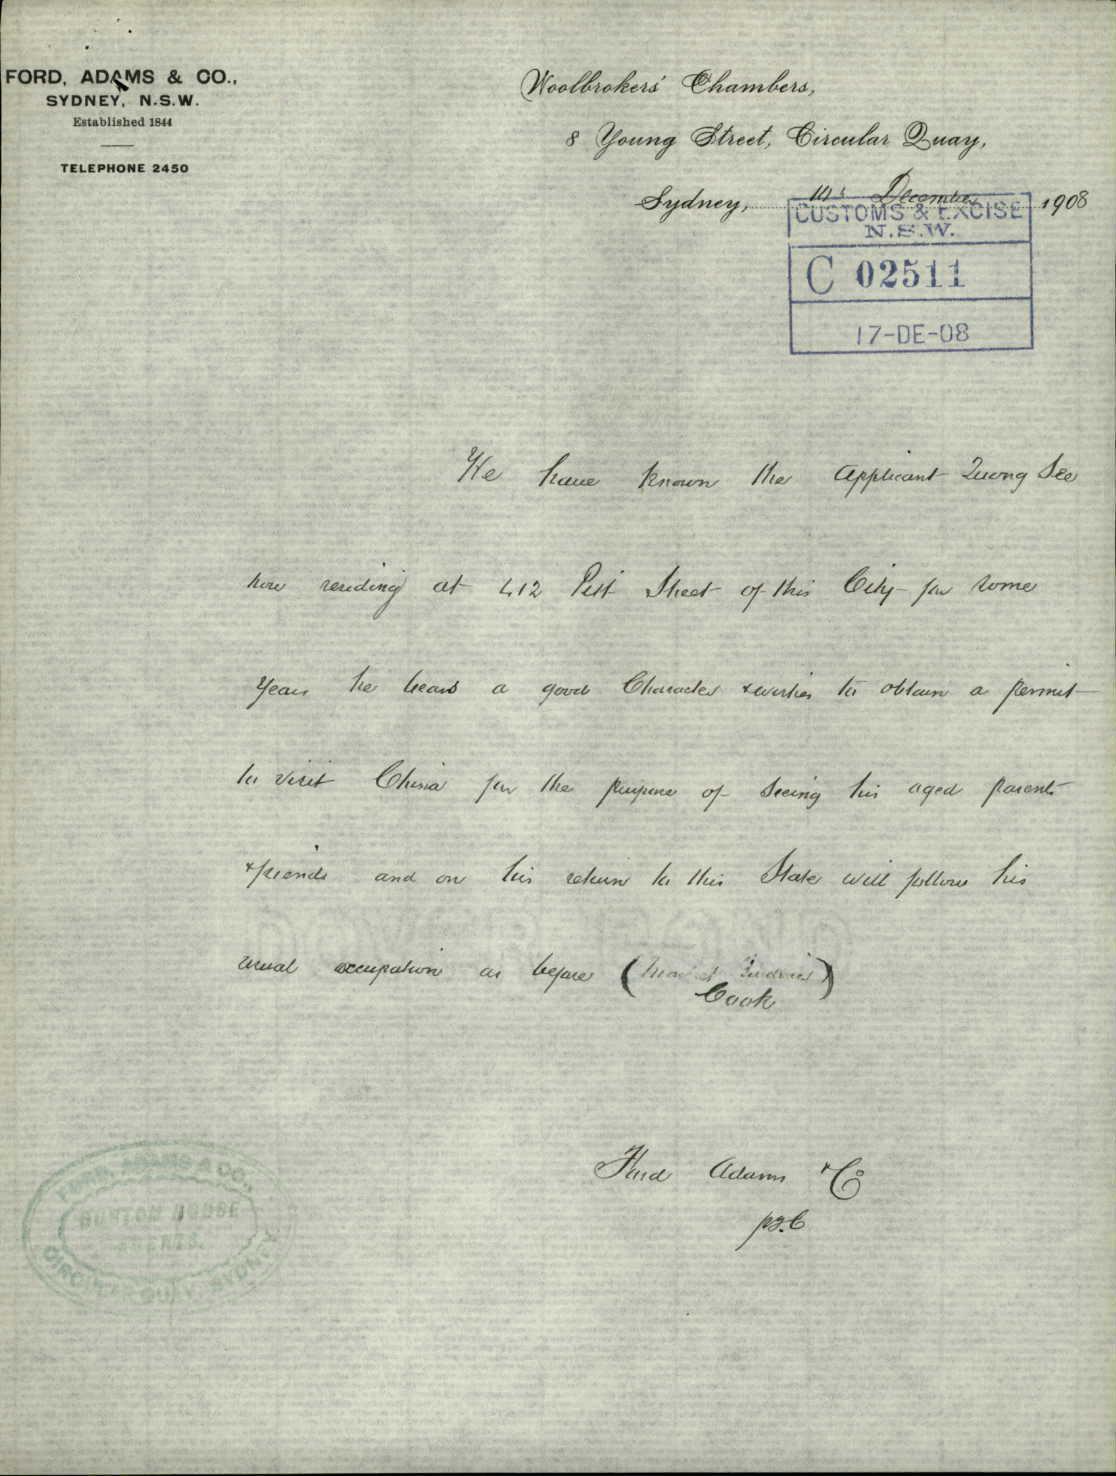 FORD, ADAMS & CO.,
SYDNEY, N.S.W.
Established 1844
TELEPHONE 2450
Woolbrokers' Chambers,
8 Young Street, Circular Quay,
Sydney, December 1908
CUSTOMS & EXCISE
N.S.W.
C 02511
17-DE-08
We have known the Applicant Quong See
now residing at 412 Pitt Street of this City for some
years he bears a good Character & wishes to obtain a permit
to visit China for the purpose of seeing his aged parents
& friends and on his return to this State will follow his
usual occupation as before (
Cook
)
Ford Adams & Co
FORD, ADAMS & CO.,
BURTON HOUSE
AGENTS.
CIRCULAR QUAY, SYDNEY